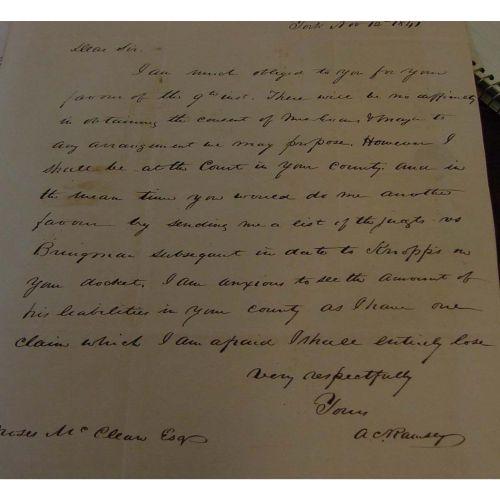 York Nov 12 1841
Dear Sir.
I am much obliged to you for your
favour of the 9th inst. There will be no
in obtaining the consent of & Mayer to
any arrangement we may propose. However I
shall be at the Court in your County. and in
the mean time you would do me another
favour by sending me a list of the judgts vs
Bringman subsequent in date to Knopp's on
your docket. I am anxious to see the amount of
his liabilities in your county as I have one
claim which I am afraid I shall entirely lose
very respectfully
Yours
A C Ramsey
Moses McClean Esq